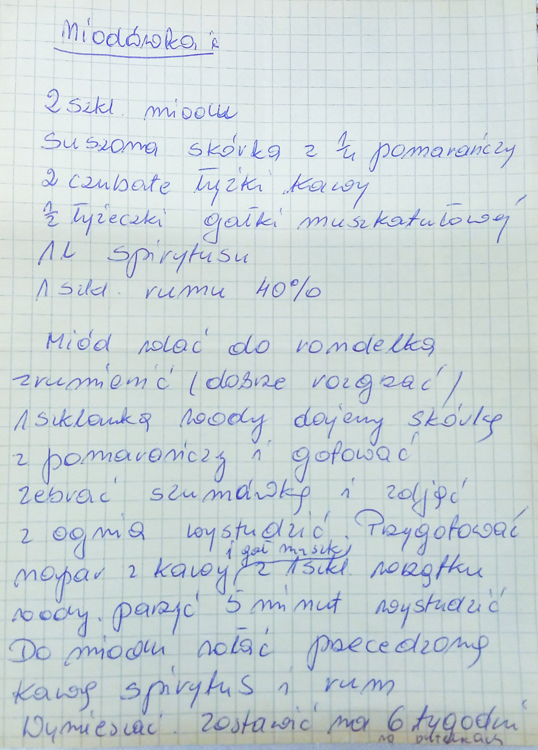 Miodówka
2 szkl. miodu
suszona skórka z 1/4 pomarańczy
2 czubate łyżki kawy
1/2 łyżeczki gałki muszkatułowej
1L spirytusu
1 szkl. rumu 40%
Miód wlać do rondelka
zrumienić (dobrze rozgrzać)
1 szklanka wody dajemy skórkę
z pomarańczy i gotować
zebrać szumówkę i zdjąć
z ognia wystudzić. Przygotować
i gał muszk
napar z kawy z 1 szkl. wrzątku
wody. parzyć 5 minut wystudzić
Do miodu wlać przecedzoną
kawę spirytus i rum
Wymieszać. zostawić na 6 tygodni